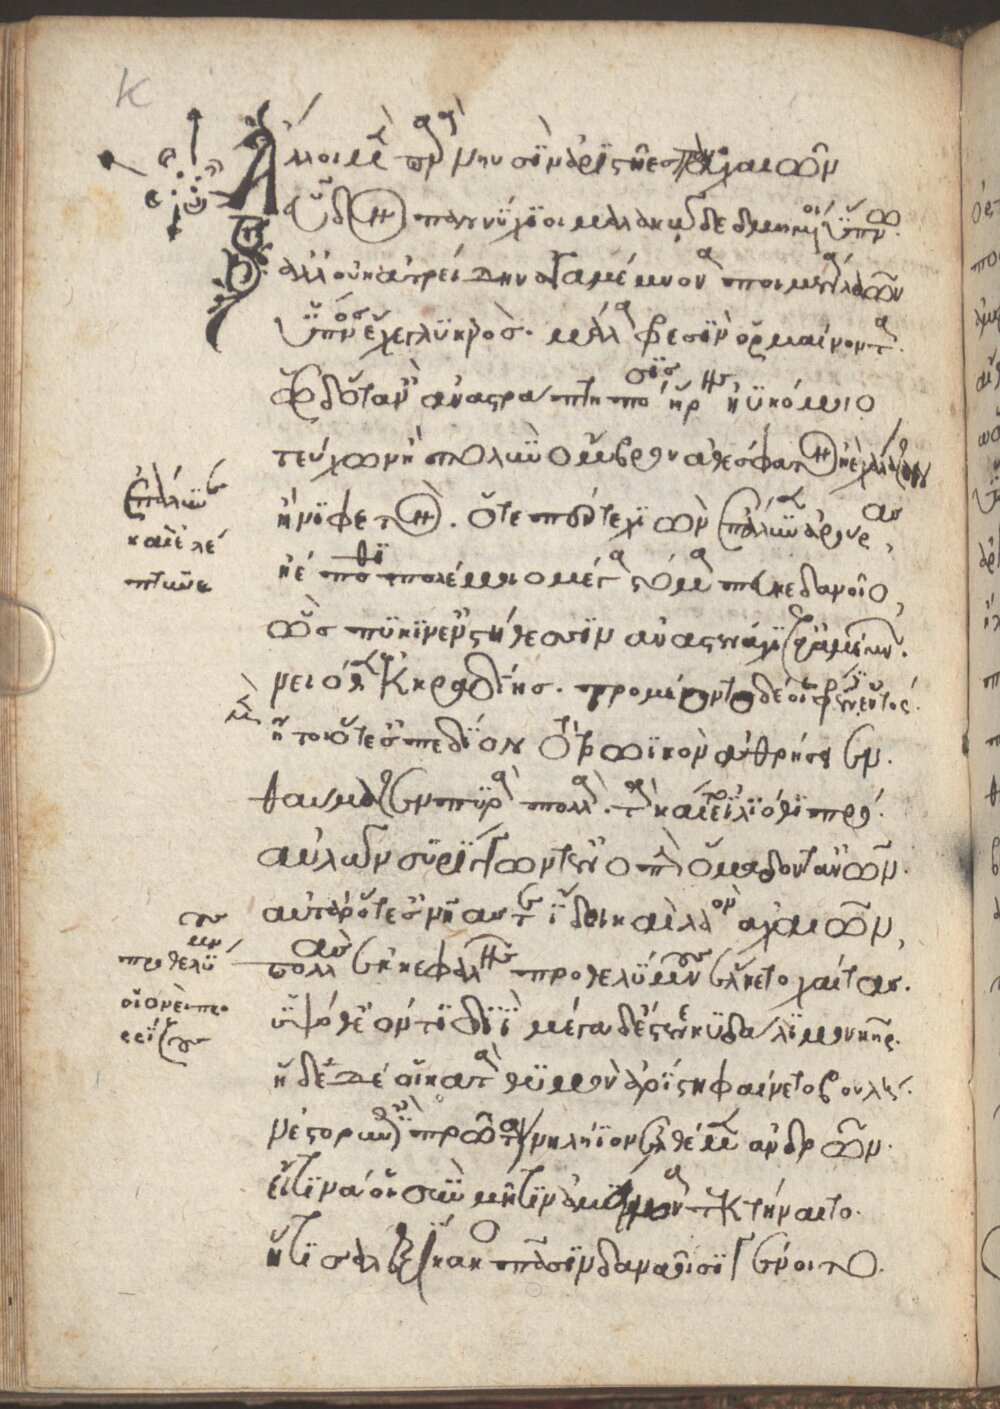 κ
Ἄλλοι μὲν παρὰ νηυσὶν ἀριστῆες παναχαιῶν
εὗδον παννύχιοι μαλακῷ δεδμημένοι ὕπνῳ.
ἀλλ' οὐκ ἀτρείδην ἀγαμέμνονα ποιμένα λαῶν
ὕπνος ἔχε γλυκερὸς. μάλα φρεσὶν ὁρμαίνοντα.
ὡς δ' ὅταν ἀστράπτη πόσις ἥρης ἠϋκόμοιο
τεύχων ἢ πολὺν ὄμβρον ἀθέσφατον ἠὲ χάλαζαν
ἢ νιφετόν. ὅτε πέρ τε χιὼν ἐπάλυνεν ἀρούρας,
ἠέ ποθι πτολέμοιο μέγα στόμα πευκεδανοῖο,
ὣς πυκίν' ἐν στήθεσσιν ἀναστενάχιζ' ἀγαμέμνων.
νειόθεν ἐκ κραδίης. τρομέοντο δέ οἱ φρένες ἐντός.
ἤτοι ὅτ' ἐς πεδίον τὸ τρωϊκὸν ἀθρήσειεν.
θαύμαζεν πυρὰ πολλὰ. τὰ καίετο ἰλιόθι πρό.
αὐλῶν συρίγγων τ' ἐνοπὴν ὅμαδόν τ' ἀνθρώπων.
αὐτὰρ ὅτ' ἐς νῆάς τ' ἴδοι καὶ λαὸν ἀχαιῶν,
πολλὰς ἐκ κεφαλῆς προθελύμνους ἕλκετο χαίτας.
ὑψόθ' ἐόντι διῒ μέγα δ' ἔστενε κυδάλιμον κῆρ.
ἥδε δέ οἱ κατὰ θυμὸν ἀρίστη φαίνετο βουλή.
νέστορ' ἐπὶ πρῶτον νηλήϊον ἐλθέμεν ἀνδρῶν.
εἴ τινά οἱ σὺν μῆτιν ἀμύμονα τεκτήναιτο.
ἥ τις ἀλεξίκακος πᾶσιν δαναοῖσι γένοιτο.
ἐπάλυνεν
καὶ ἐλέ
πτυνε
προθελύ
μνους